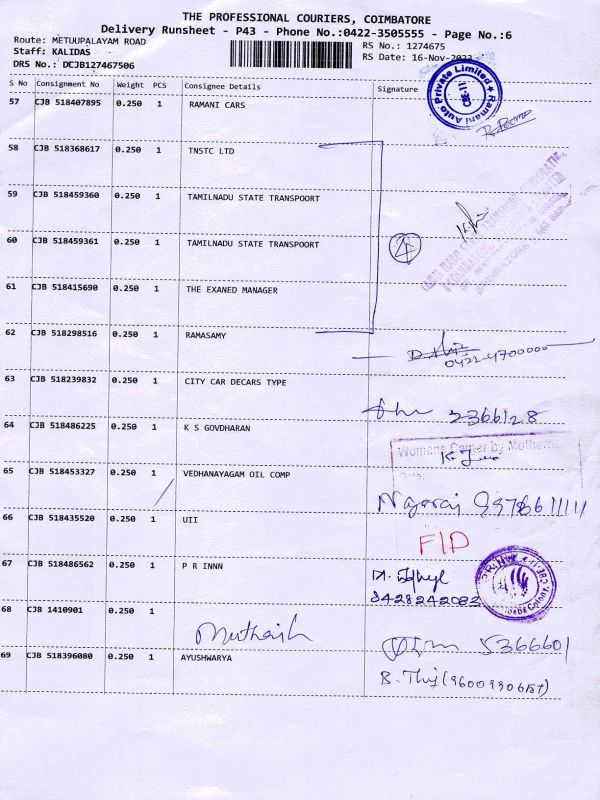 THE PROFESSIONAL COURIERS, COIMBATORE
Delivery Runsheet - P43 - Phone No.:0422-3505555 - Page No.:6
Route: METUUPALAYAM ROAD
Staff: KALIDAS
DRS No.: DCJB127467506
RS No.: 1274675
RS Date: 16-Nov-2023
S No Consignment No Weight PCS Consignee Details Signature
57 CJB 518407895 0.250 1 RAMANI CARS
Ramani Auto Private Limited
58 CJB 518368617 0.250 1 TNSTC LTD
59 CJB 518459360 0.250 1 TAMILNADU STATE TRANSPOORT
60 CJB 518459361 0.250 1 TAMILNADU STATE TRANSPOORT
4
61 CJB 518415690 0.250 1 THE EXANED MANAGER
62 CJB 518298516 0.250 1 RAMASAMY
0422-4700000
63 CJB 518239832 0.250 1 CITY CAR DECARS TYPE
2366128
64 CJB 518486225 0.250 1 K S GOVDHARAN
Womans Center by Motherhood
65 CJB 518453327 0.250 1 VEDHANAYAGAM OIL COMP
Nagaraj
66 CJB 518435520 0.250 1 UII
FID
67 CJB 518486562 0.250 1 P R INNN
68 CJB 1410901 0.250 1
5366601
69 CJB 518396080 0.250 1 AYUSHWARYA